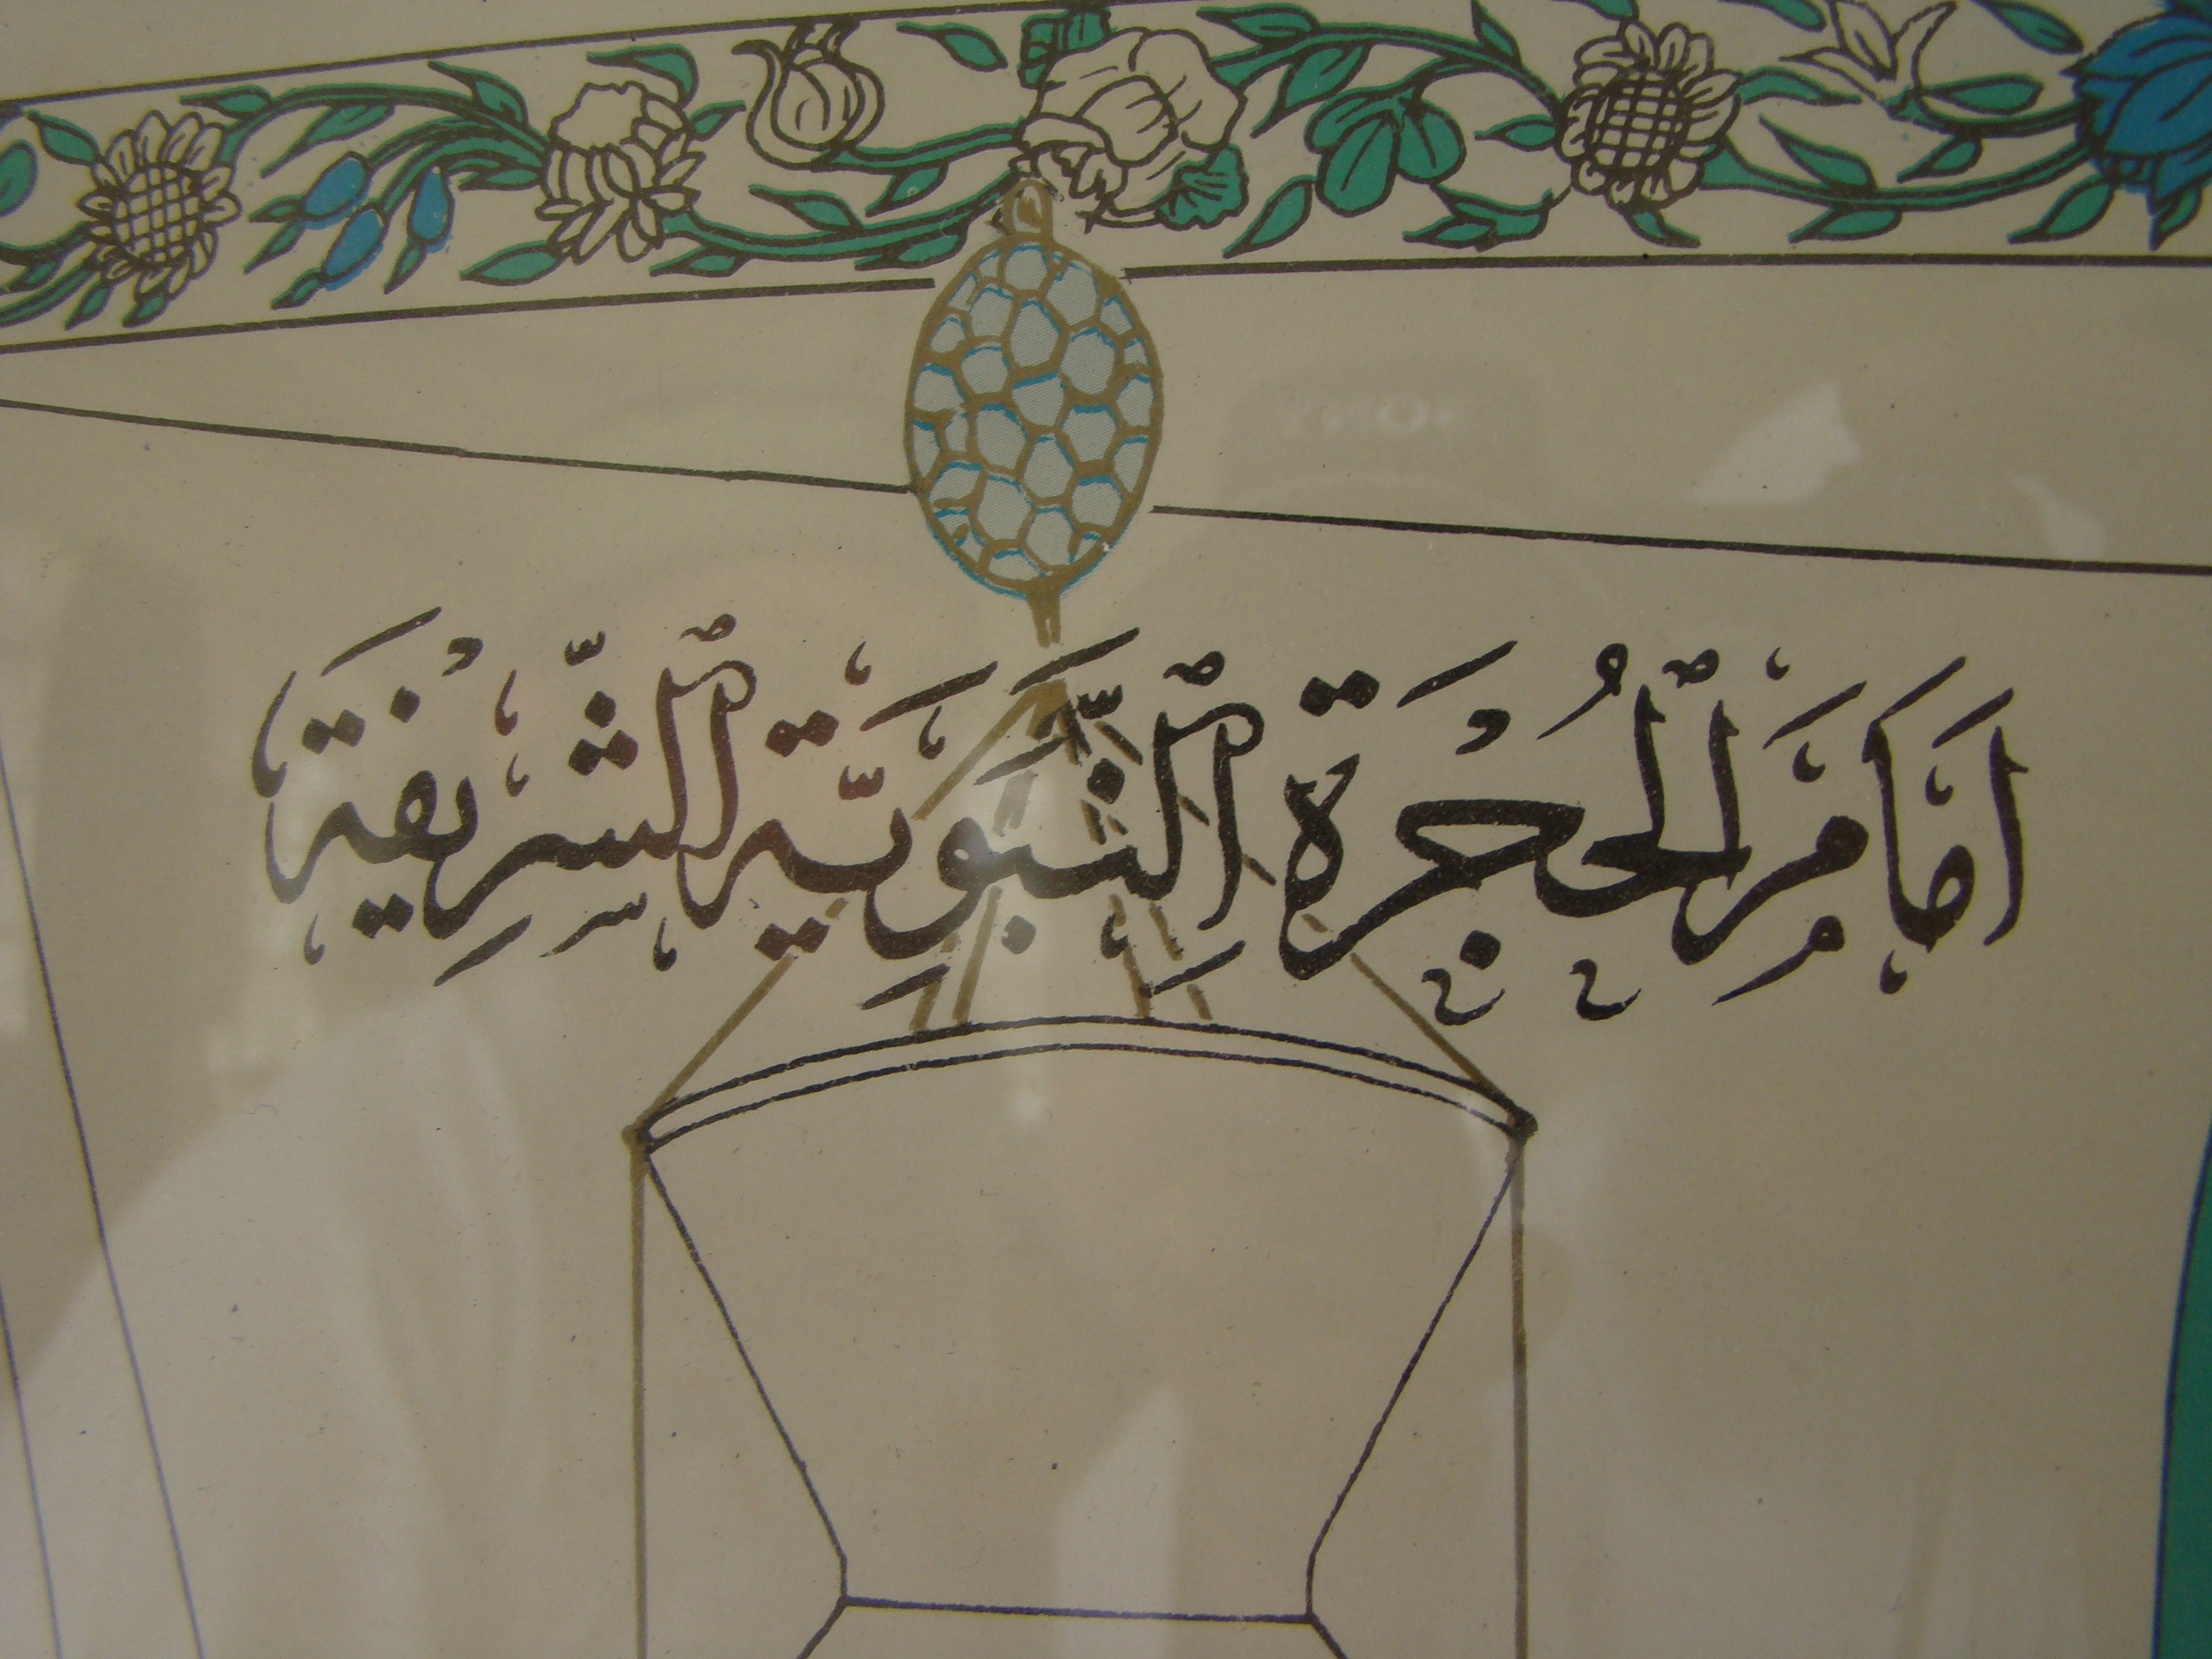 اَمَامَ الْحُجْرَةِ النَّبَوِيَّةِ الشَّرِيْفَةِ